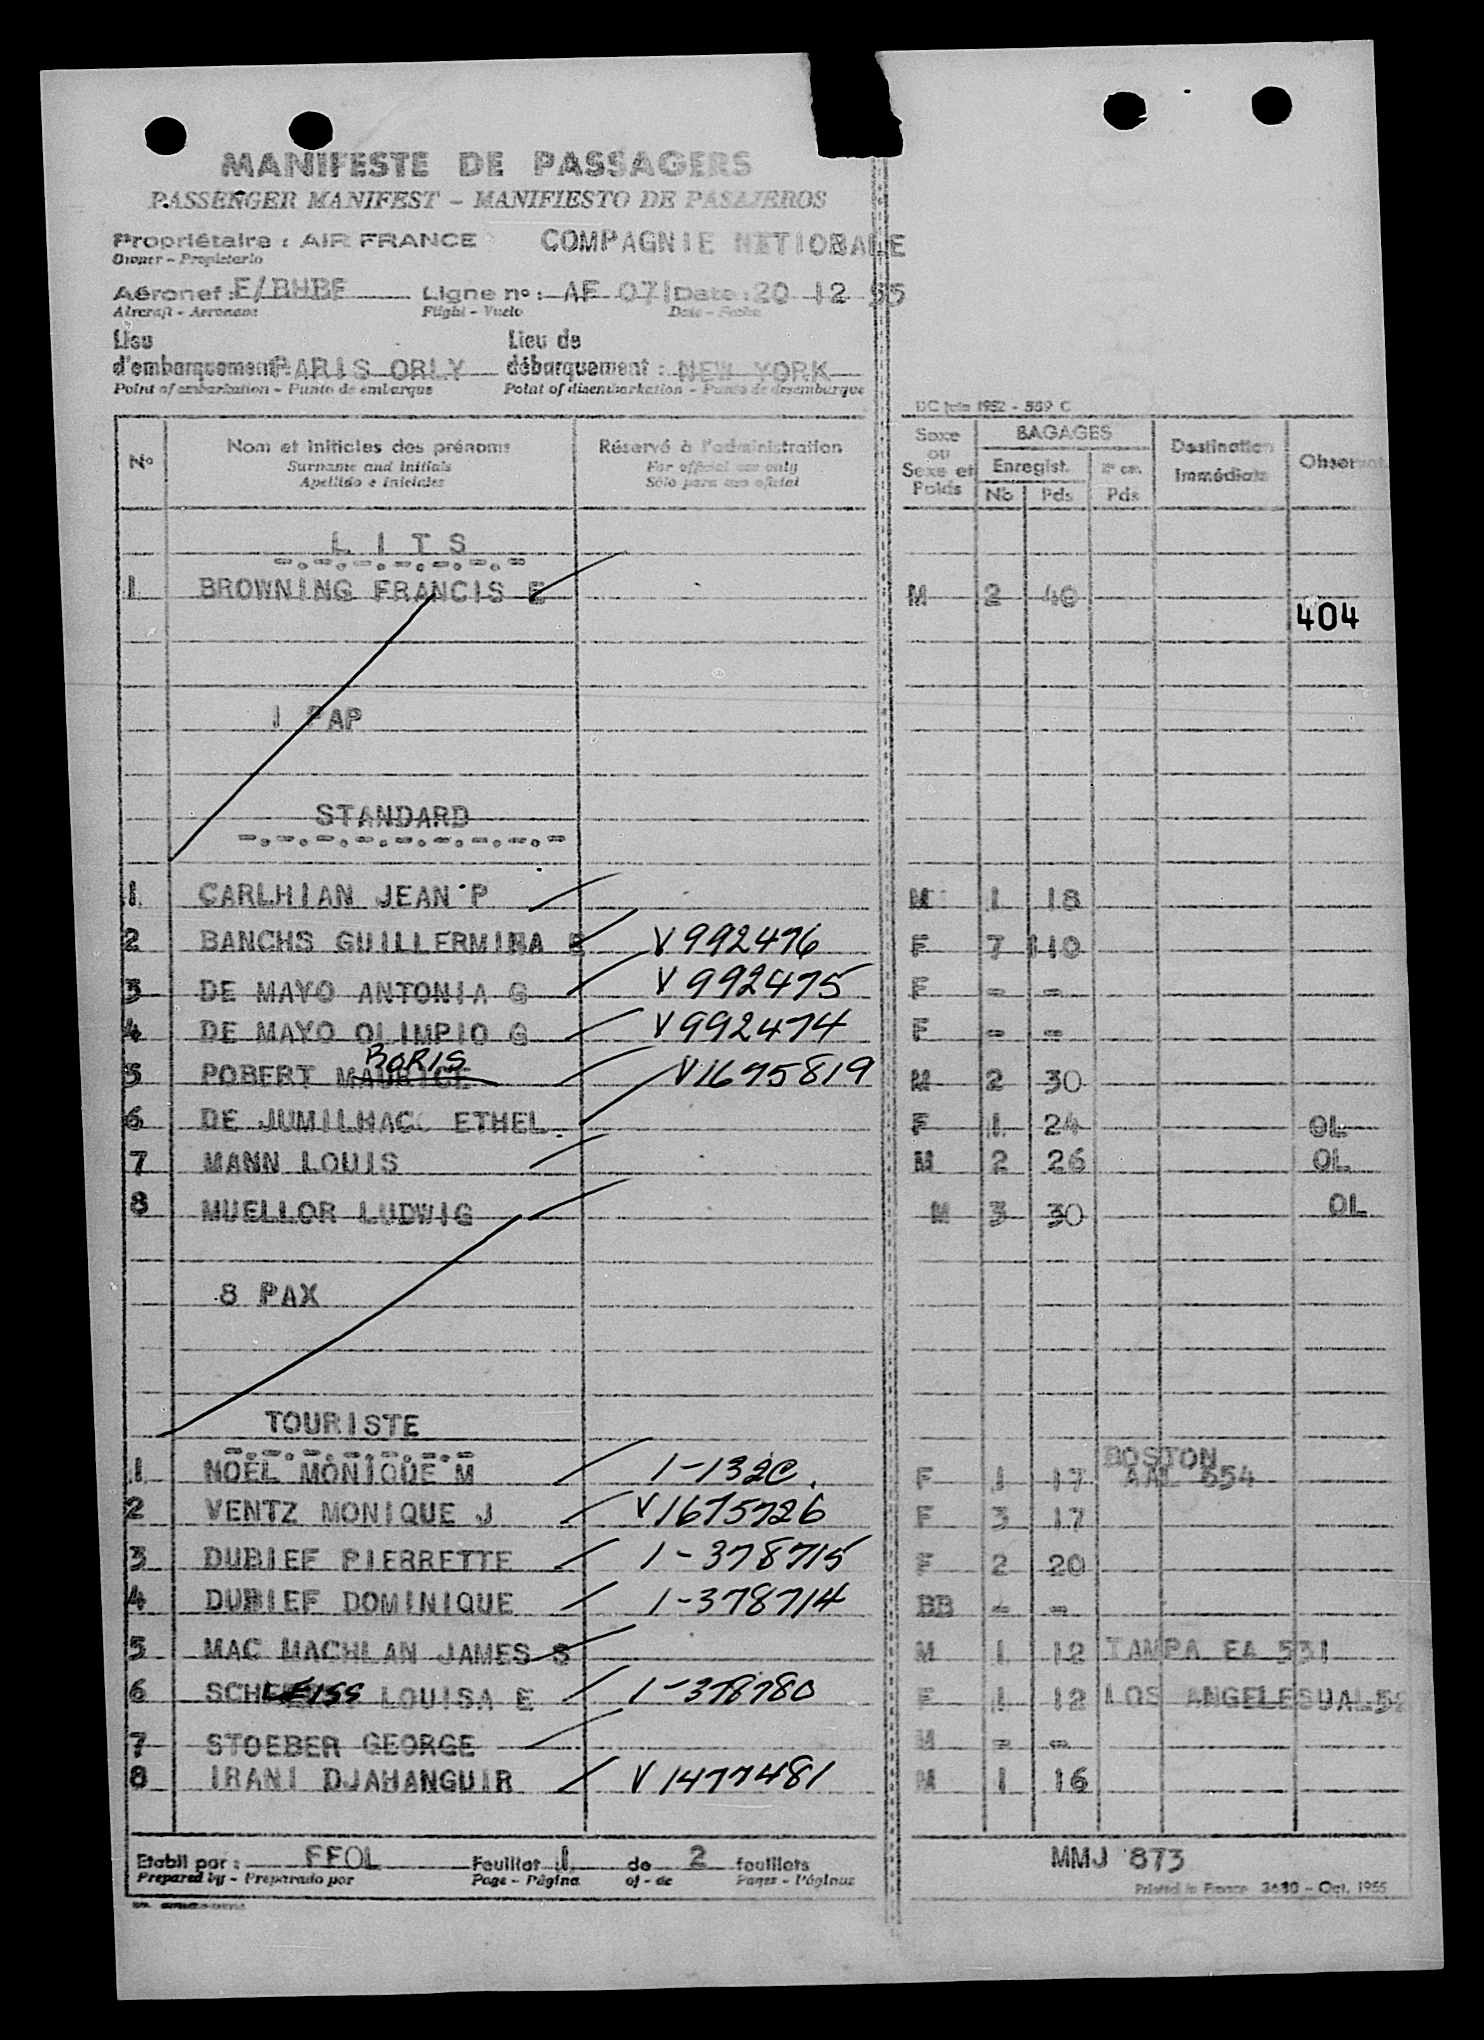 MANIFESTE DE PASSAGERS
PASSENGER MANIFEST - MANIFIESTO DE PASAJEROS
Propriétaire : AIR FRANCE COMPAGNIE NATIOBALE
Owner - Propietario
Aéronef : F/BHBF Ligne no : AF 071 Date : 20 12 55
Aircraft - Aeronave Flight - Vuelo Date - Fecha
Lieu d'embarquement : PARIS ORLY Lieu de débarquement : NEW YORK
Point of embarkation - Punto de embarque Point of disembarkation - Punto de desembarque
DC Juin 1952 - 589 C
No Nom et initiales des prénoms Réservé à l'administration Sexe ou Sexe et Poids BAGAGES Destination Immédiate Observat.
Surname and initials For official use only Enregist.
Apellido e iniciales Sólo para uso oficial Nb Pds Pds
L I T S
1 BROWNING FRANCIS E M 2 40
404
1 PAP
STANDARD
1 CARLHIAN JEAN P M 1 18
2 BANCHS GUILLERMINA V 992476 F 7 110
3 DE MAYO ANTONIA G V 992475 F - -
4 DE MAYO OLIMPIO G V 992474 F - -
BORIS
5 POBERT MAURICE V 1675819 M 2 30
6 DE JUMILHAC ETHEL F 1 24 OL
7 MANN LOUIS M 2 26 OL
8 MUELLOR LUDWIG M 3 30 OL
8 PAX
TOURISTE
BOSTON
1 NOEL MONIQUE M 1-132C F 1 17 AAL 654
2 VENTZ MONIQUE J V 1675726 F 3 17
3 DUBIEF PIERRETTE 1-378715 F 2 20
4 DUBIEF DOMINIQUE 1-378714 BB - -
5 MAC MACHLAN JAMES S M 1 12 TAMPA EA 531
6 SCHLEISS LOUISA E 1-378780 F 1 12 LOS ANGELESUAL
7 STOEBER GEORGE M - -
8 IRANI DJAHANGUIR V 1477481 M 1 16
Etabli par : FFOL Feuillet 1 de 2 feuillets MMJ 873
Prepared by - Preparado por Page - Página of - de Pages - Páginas
Printed in France 3630 - Oct. 1955